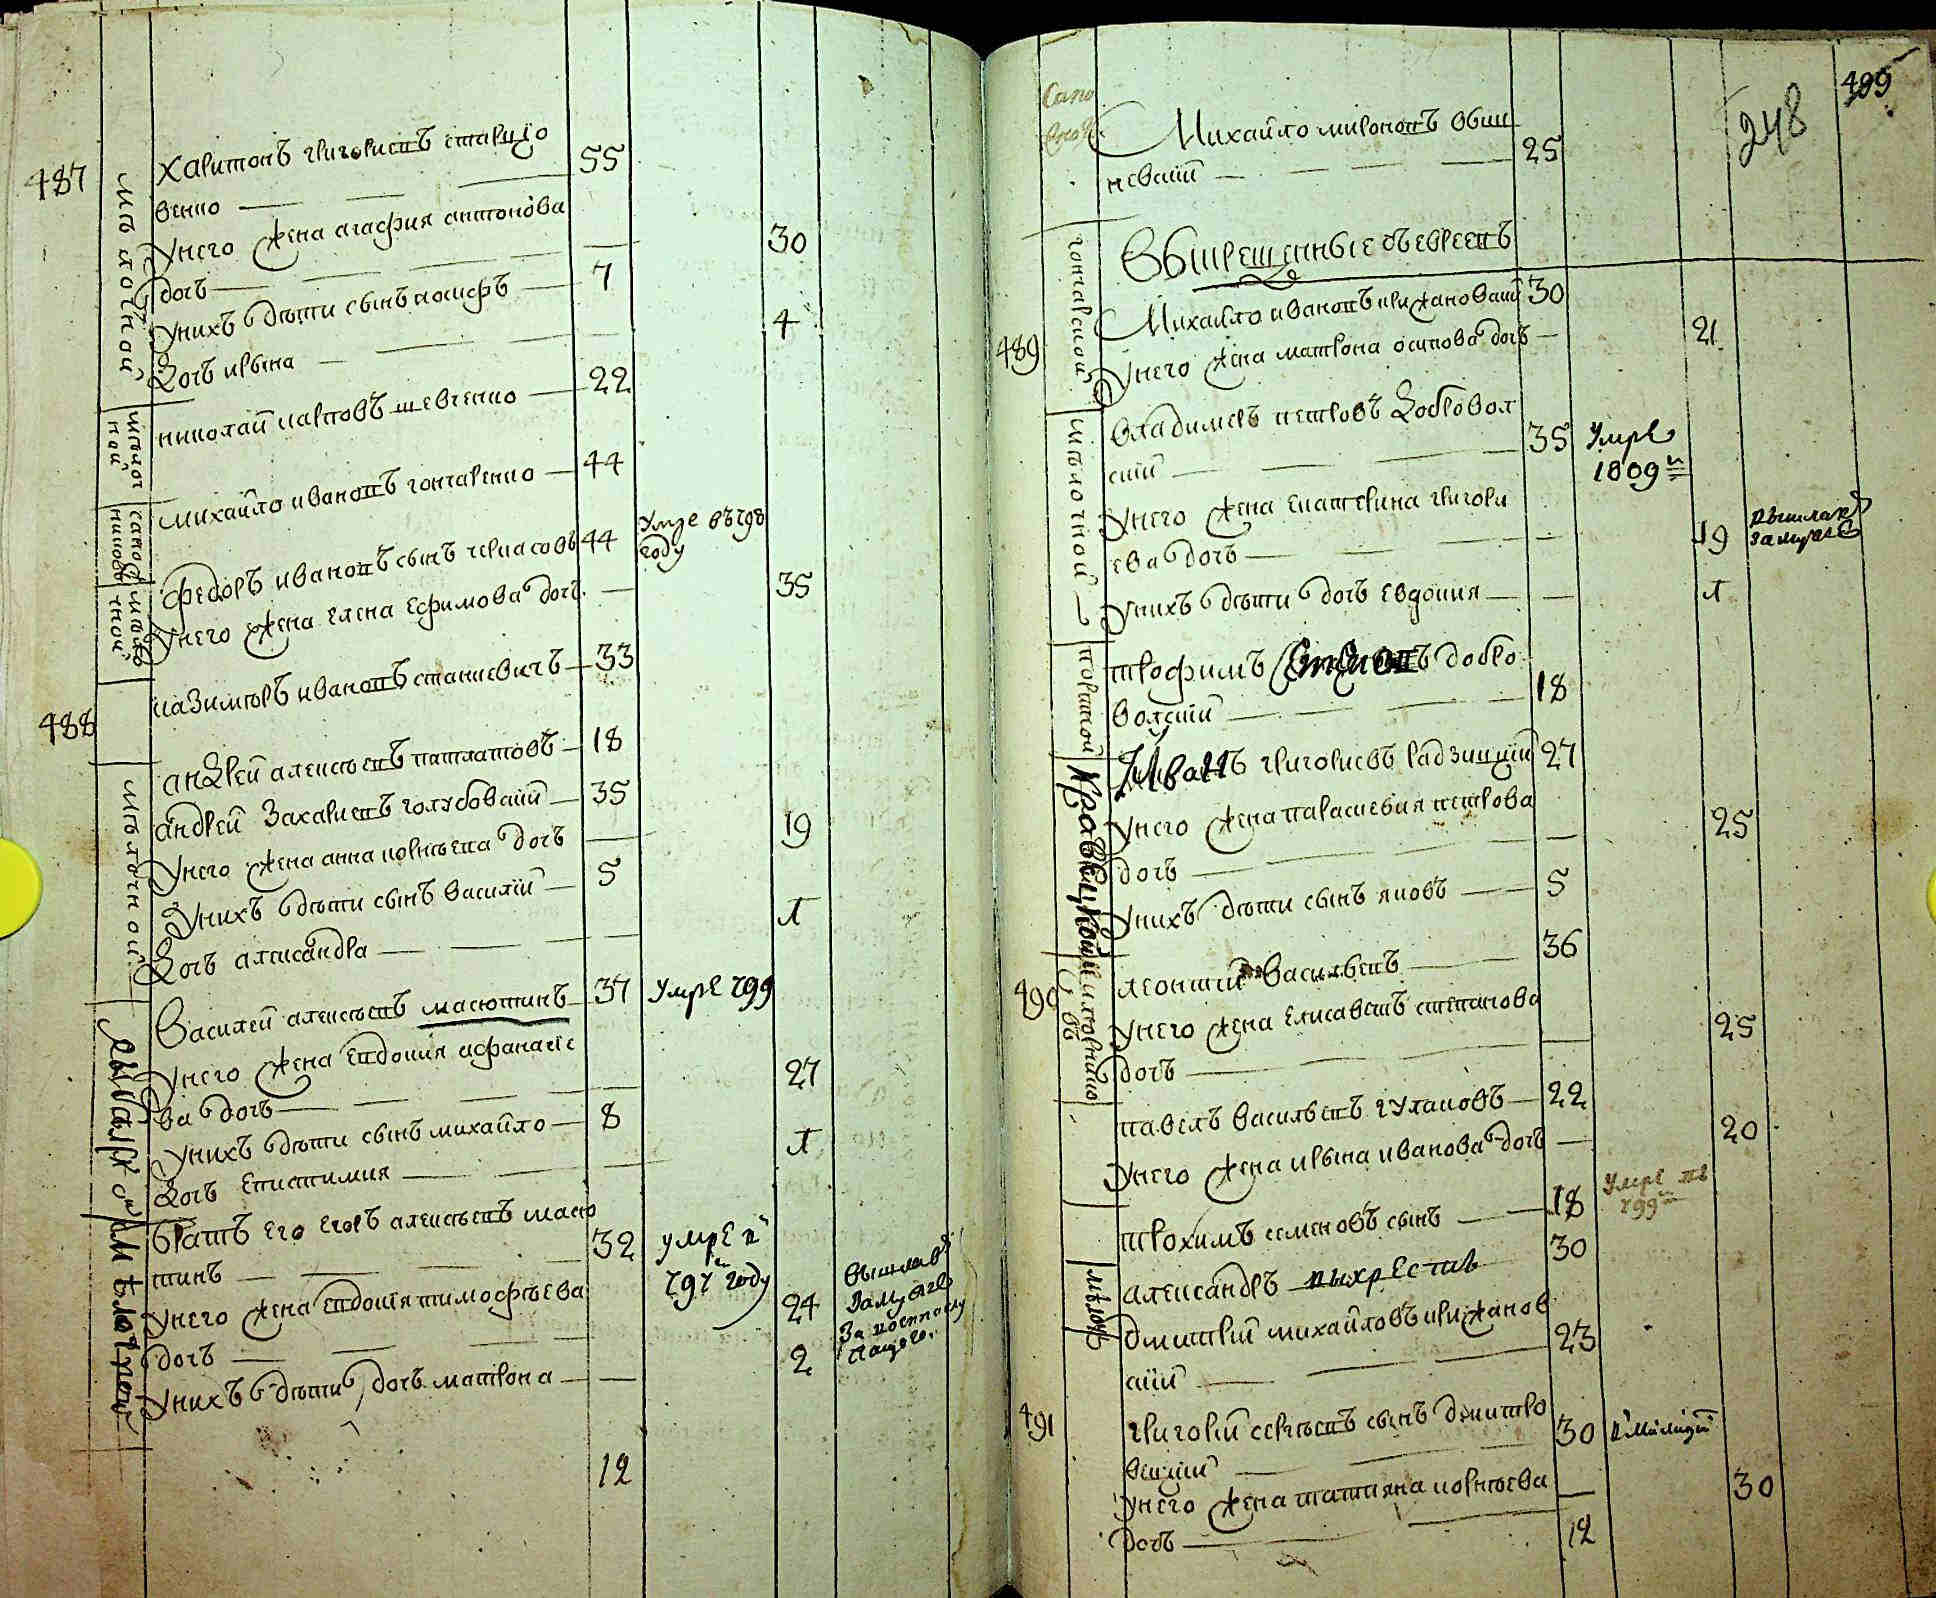 487
харитонъ григориевъ старицо
венко 55
мѣлочной
унего жена агафия антонова
дочь 30
унихъ дѣти сынъ иосифъ 7
дочь ирына 4
николай карповъ шевченко 22
михайло ивановъ гончаренко 44
федоръ ивановъ сынъ черкасовъ 44
умре въ 798
году
унего жена елена ефимова дочь 35
488
казимиръ ивановъ станкевичъ 33
андрей алексѣевъ патлатовъ 18
мѣлочной
андрей захариевъ голубовский 35
унего жена анна корнѣева дочь 19
унихъ дѣти сынъ василий 5
дочь александра 1
василей алексѣевъ масютинъ 37 умре 799
унего жена евдокия афанасие
ва дочь 27
унихъ дѣти сынъ михайло 8
дочь епистимия 1
братъ его егоръ алексѣевъ масю
тинъ 32
умре в
797 году
унего жена евдокия тимофѣева
дочь 24
вышла в
замуже
унихъ дѣти дочь матрона 2
12
499
248
Михайло мироновъ обши
невский 25
выкрещенные съ евреевъ
489
Михайло ивановъ крижановский 30
унего жена матрона осипова дочь 21
владимеръ петровъ добровол
ский 35
умре
1809
мѣлочной
унего жена екатерина григори
ева дочь 19
вышла в
замуже
унихъ дѣти дочь евдокия 1
портной
трофимъ добро
волский 18
Иванъ григориевъ радзицкий 27
унего жена параскевия петрова
дочь 25
унихъ дѣти сынъ яковъ 5
490
леонтий васильевъ 36
унего жена елисаветъ степанова
дочь 25
павелъ васильевъ гулаковъ 22
унего жена ирына иванова дочь 20
трохимъ семеновъ сынъ 18
умре в
799
александръ выкрестъ 30
дмитрий михайловъ крижанов
ский 23
491
григорий сергѣевъ сынъ дмитро
вский 30
унего жена татияна корнѣева
дочь 30
12